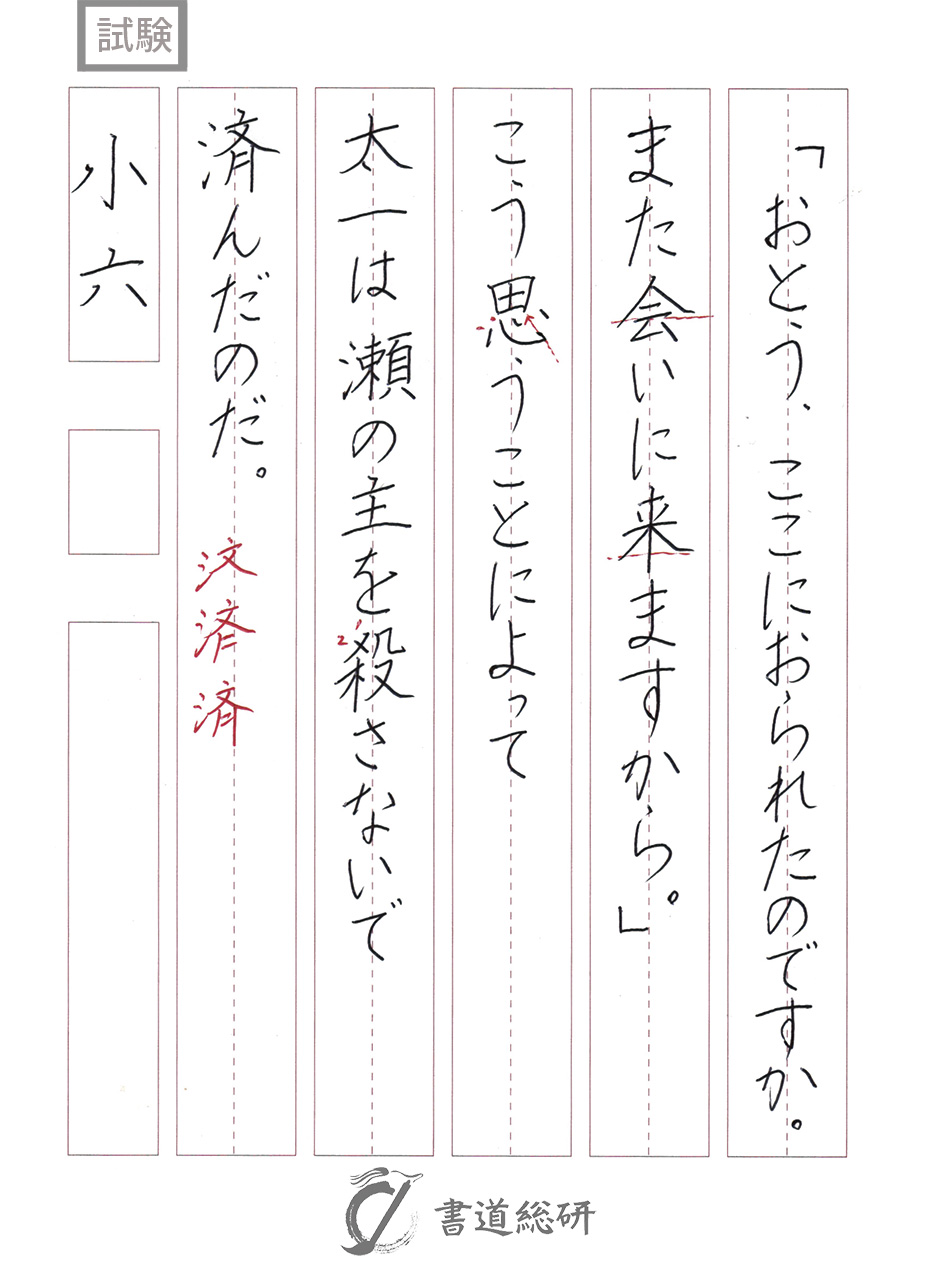 試験
「おとう、ここにおられたのですか。
また会いに来ますから。」
こう思うことによって
太一は瀬の主を殺さないで
済んだのだ。
済済
小六
書道総研